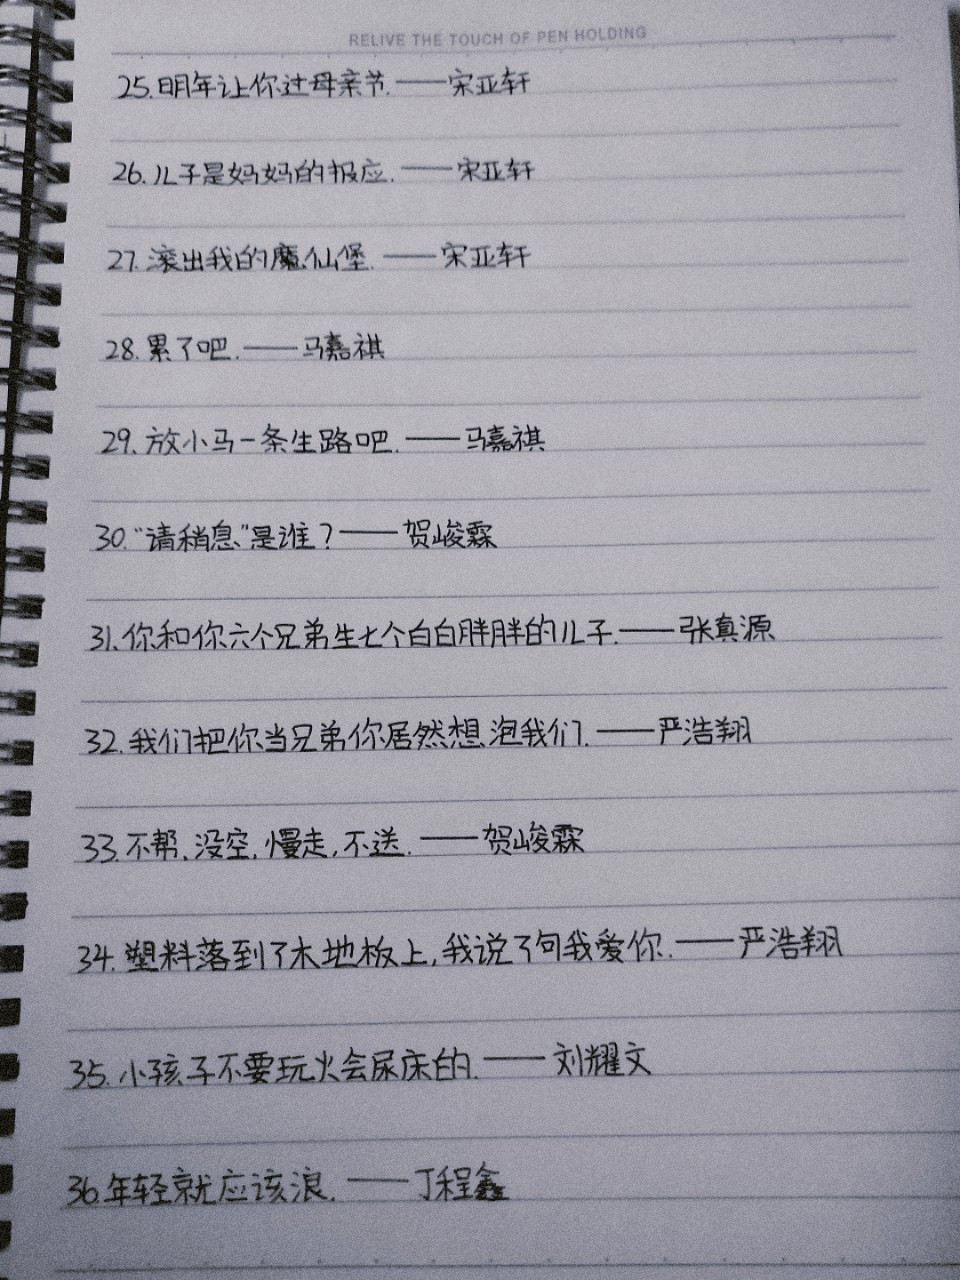 RELIVE THE TOUCH OF PEN HOLDING
25.明年让你过母亲节.——宋亚轩
26.儿子是妈妈的报应.——宋亚轩
27.滚出我的魔仙堡.——宋亚轩
28.累了吧.——马嘉祺
29.放小马一条生路吧.——马嘉祺
30.“请稍息”是谁?——贺峻霖
31.你和你六个兄弟生七个白白胖胖的儿子.——张真源
32.我们把你当兄弟你居然想泡我们.——严浩翔
33.不帮,没空,慢走,不送.——贺峻霖
34.塑料落到了木地板上,我说了句我爱你.——严浩翔
35.小孩子不要玩火会尿床的.——刘耀文
36.年轻就应该浪.——丁程鑫